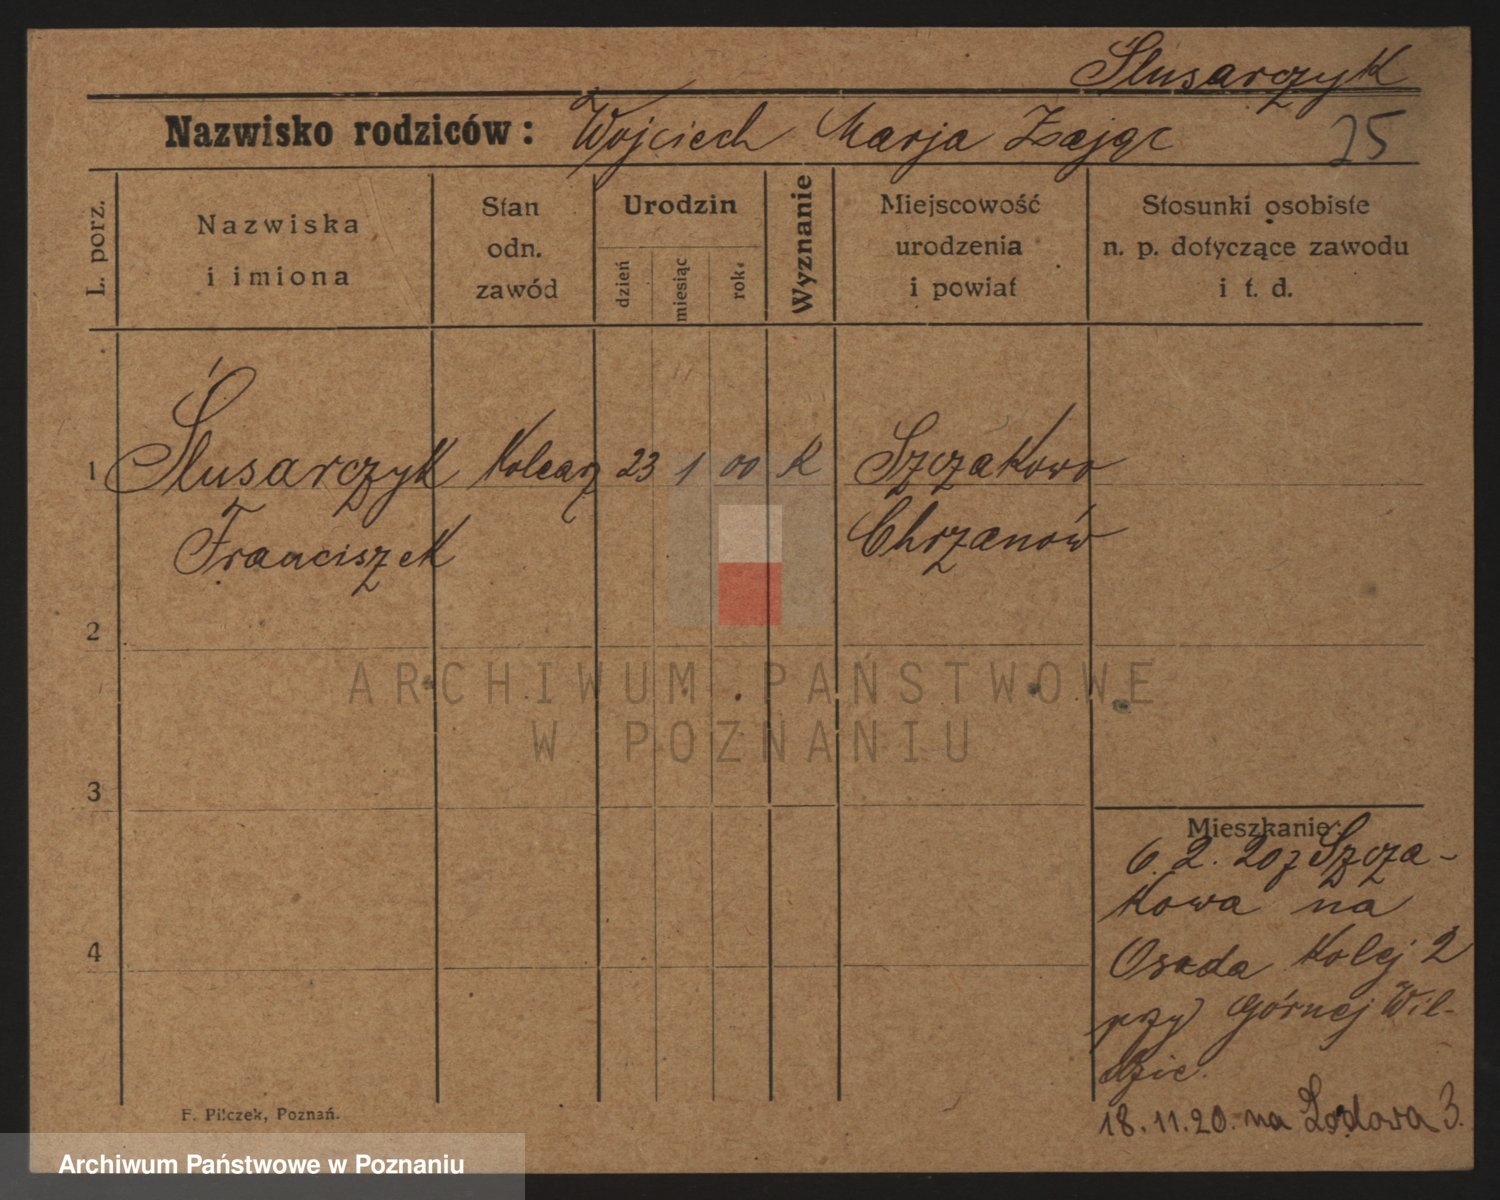 Ślusarczyk
Nazwisko rodziców: Wojciech Marja Zając 25
L. porz.
Nazwiska
i imiona
Stan
odn.
zawód
Urodzin
dzień
miesiąc
rok
Wyznanie
Miejscowość
urodzenia
i powiat
Stosunki osobiste
n. p. dotyczące zawodu
i t. d.
1 Ślusarczyk Kolearz 23 1 00 K Szczakowo
Franciszek Chrzanów
2
ARCHIWUM PAŃSTWOWE
W POZNANIU
3
Mieszkanie:
6. 2. 20 z Szcza-
kowa na
Osada Kolej 2
przy Górnej Wil-
dzie.
4
18.11.20. na Lodowa 3.
F. Pilczek, Poznań.
Archiwum Państwowe w Poznaniu